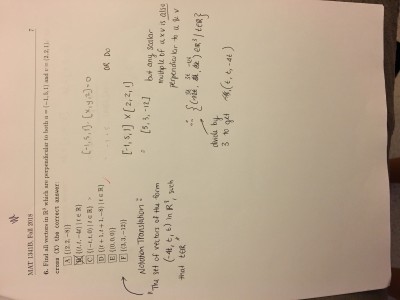 MAT 1341B, Fall 2018
7
6. Find all vectors in R³ which are perpendicular to both u = (-1, 5, 1) and v = (2, 2, 1).
cross (X) the correct answer:
A {(2, 2, -8)}
B {(t, t, -4t) | t ∈ R}
C {(-t, t, 0) | t ∈ R}
D {(t + 1, t + 1, -8) | t ∈ R}
E {(0, 0, 0)}
F {(3, 3, -12)}
[-1, 5, 1] · [x, y, z] = 0
OR DO
[-1, 5, 1] × [2, 2, 1]
= [3, 3, -12]
but any scalar
multiple of u × v is also
perpendicular to u & v
∈ R³ / t ∈ R}
divide by
3 to get
Notation Translation:
"The set of vectors of the form
(-4t, t, t) in R³, such
that t ∈ R"